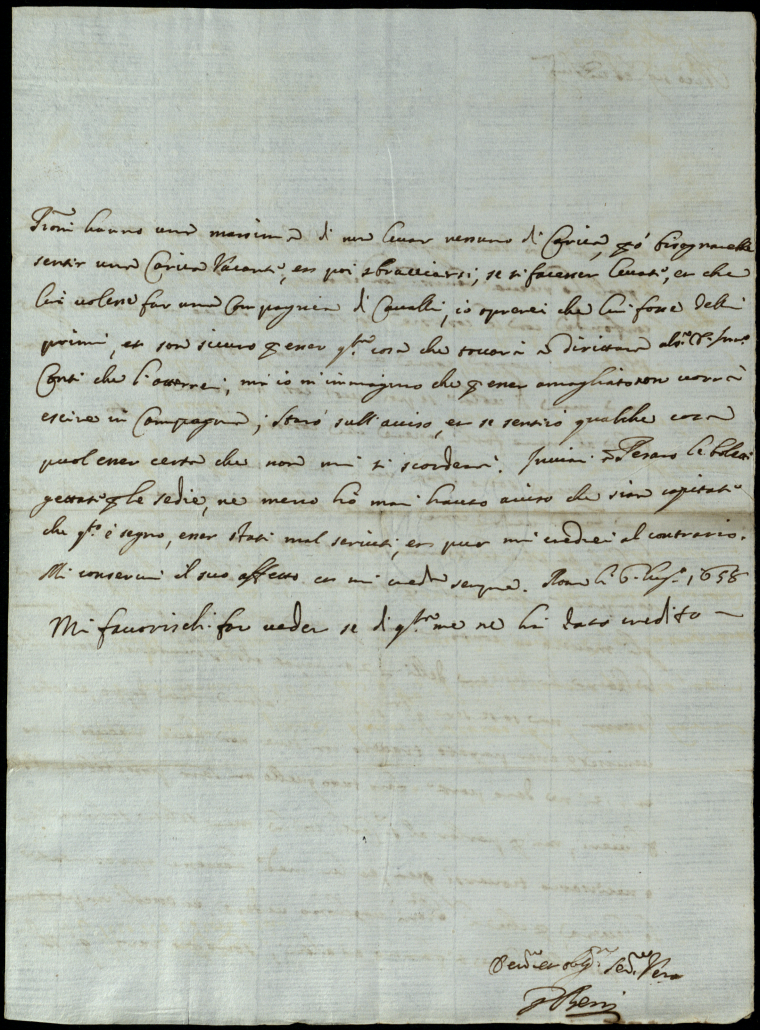 hanno una massima di non levar nessuno di Carica, però bisognarebbe
sentir una Carica Vacante, et poi sbracciarsi, se si facesser levate, et che
lui volesse far una Compagnia di Cavalli, io operei che lui fosse delli
primi, et son sicuro p esser qta cosa che toccarà a dirittura al
Conti che l'otterrei, mi io m'immagino che p esser amogliato non vorrà
escire in Compagnia, starò sull'aviso, et se sentirò qualche cosa
puol esser certa che non mi si scorderà. Inviai a Pesaro le
p le sedie, ne meno hò mai hauto aviso che sian capitate
che qto è segno, esser stati mal serviti, et pur mi credei al contrario.
Mi conservi il suo affetto et mi creda sempre. Roma li 6 1658
Mi favorischi far veder se di me ne ha dato credito